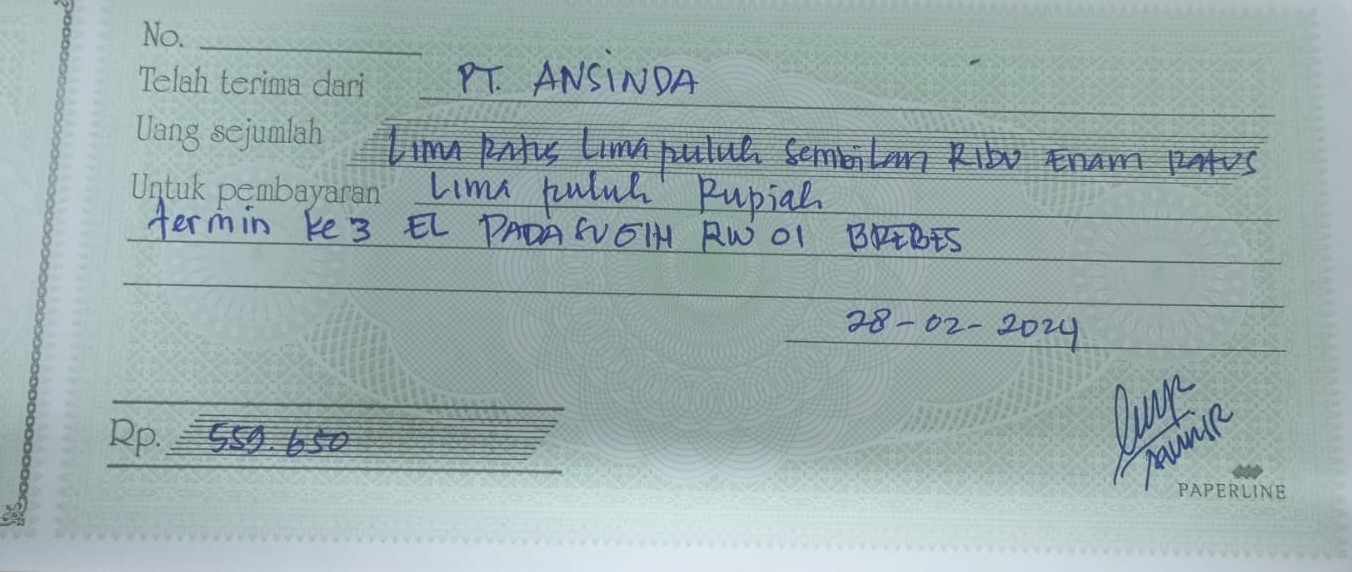 No.
Telah terima dari PT. ANSINDA
Uang sejumlah Lima Ratus Lima puluh Sembilan Ribu Enam Ratus
Untuk pembayaran Lima puluh Rupiah
termin ke 3 EL PADASUGIH RW 01 BREBES
28-02-2024
Rp. 559.650
PAPERLINE